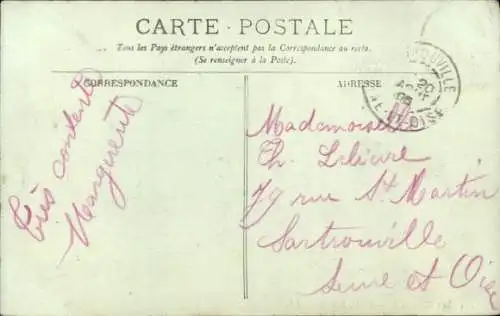 CARTE · POSTALE
Tous les Pays étrangers n'acceptent pas la Correspondance au recto.
(Se renseigner à la Poste).
CORRESPONDANCE
ADRESSE
Très content
Marguerite
Mademoiselle
Th. Lelièvre
79 rue St Martin
Sartrouville
Seine et Oise
20